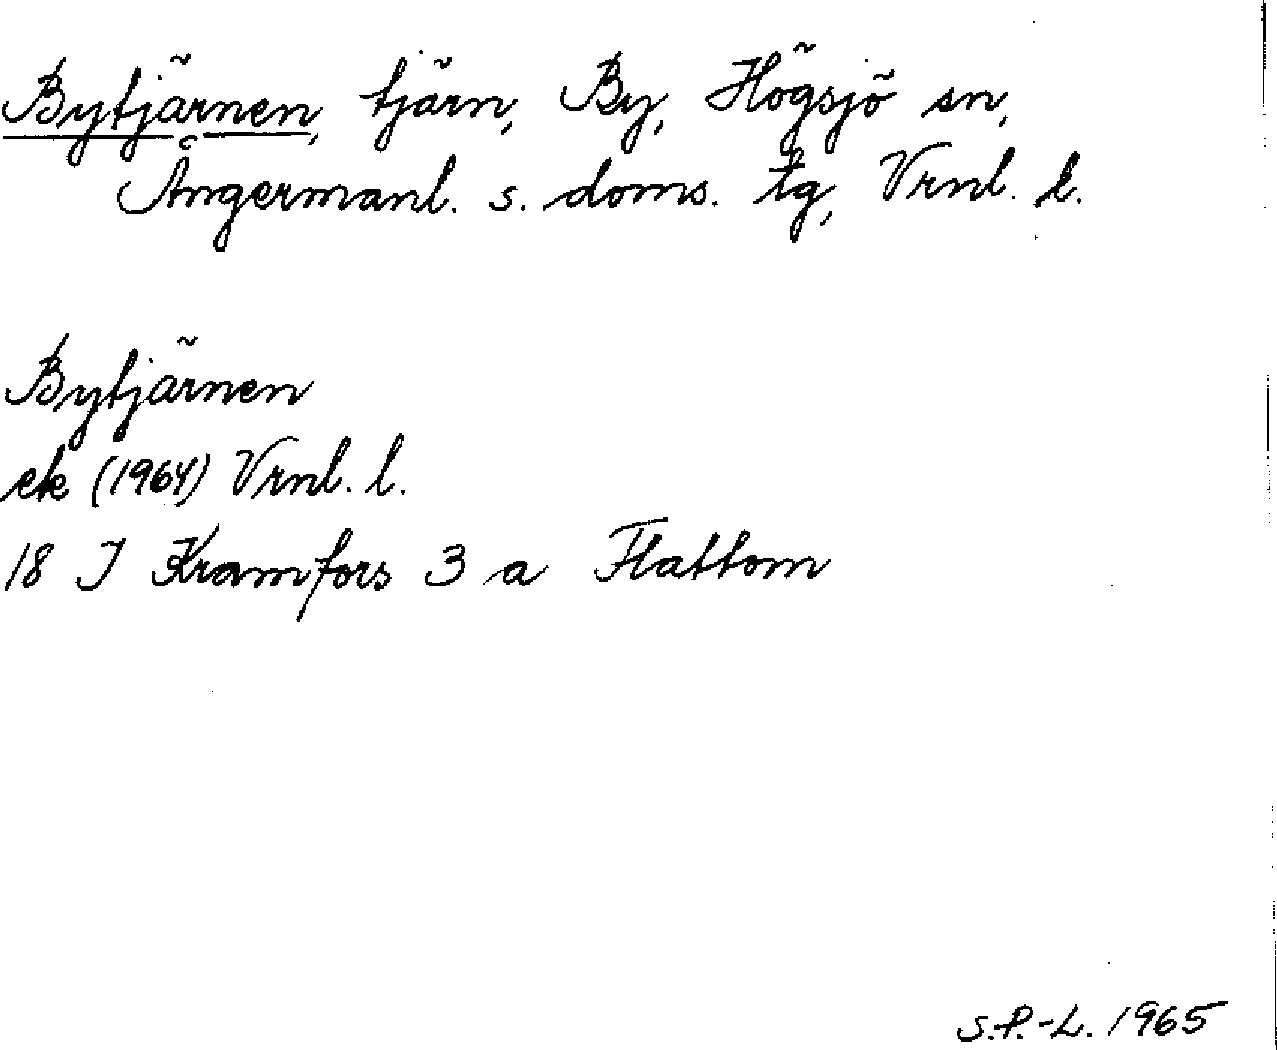 Bytjärnen, tjärn, By, Högsjö sn,
Ångermanl. s. doms. tg, Vrnl. l.
Bytjärnen
ek (1964) Vrnl. l.
18 I Kramfors 3 a Flattom
S.P.-L. 1965